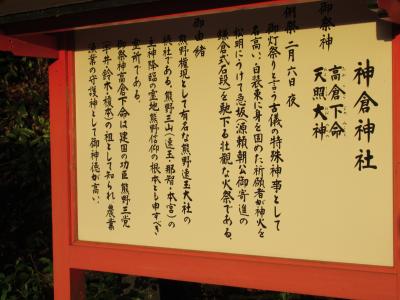 神倉神社
御祭神
高倉下命
天照大神
例祭 二月六日 夜
御灯祭りと言う古儀の特殊神事として
名高い、白装束に身を固めた祈願者が神火を
松明にうけて急坂(源頼朝公御寄進の
鎌倉式石段)を馳下る壮観な火祭である。
御由緒
熊野権現として有名な熊野速玉大社の
摂社である。熊野三山(速玉・那智・本宮)の
主神降臨の霊地、熊野信仰の根本とも申すべき
霊所である。
御祭神高倉下命は建国の功臣、熊野三党
(宇井・鈴木・榎本)の祖として知られ、農業
漁業の守護神として御神徳が高い。